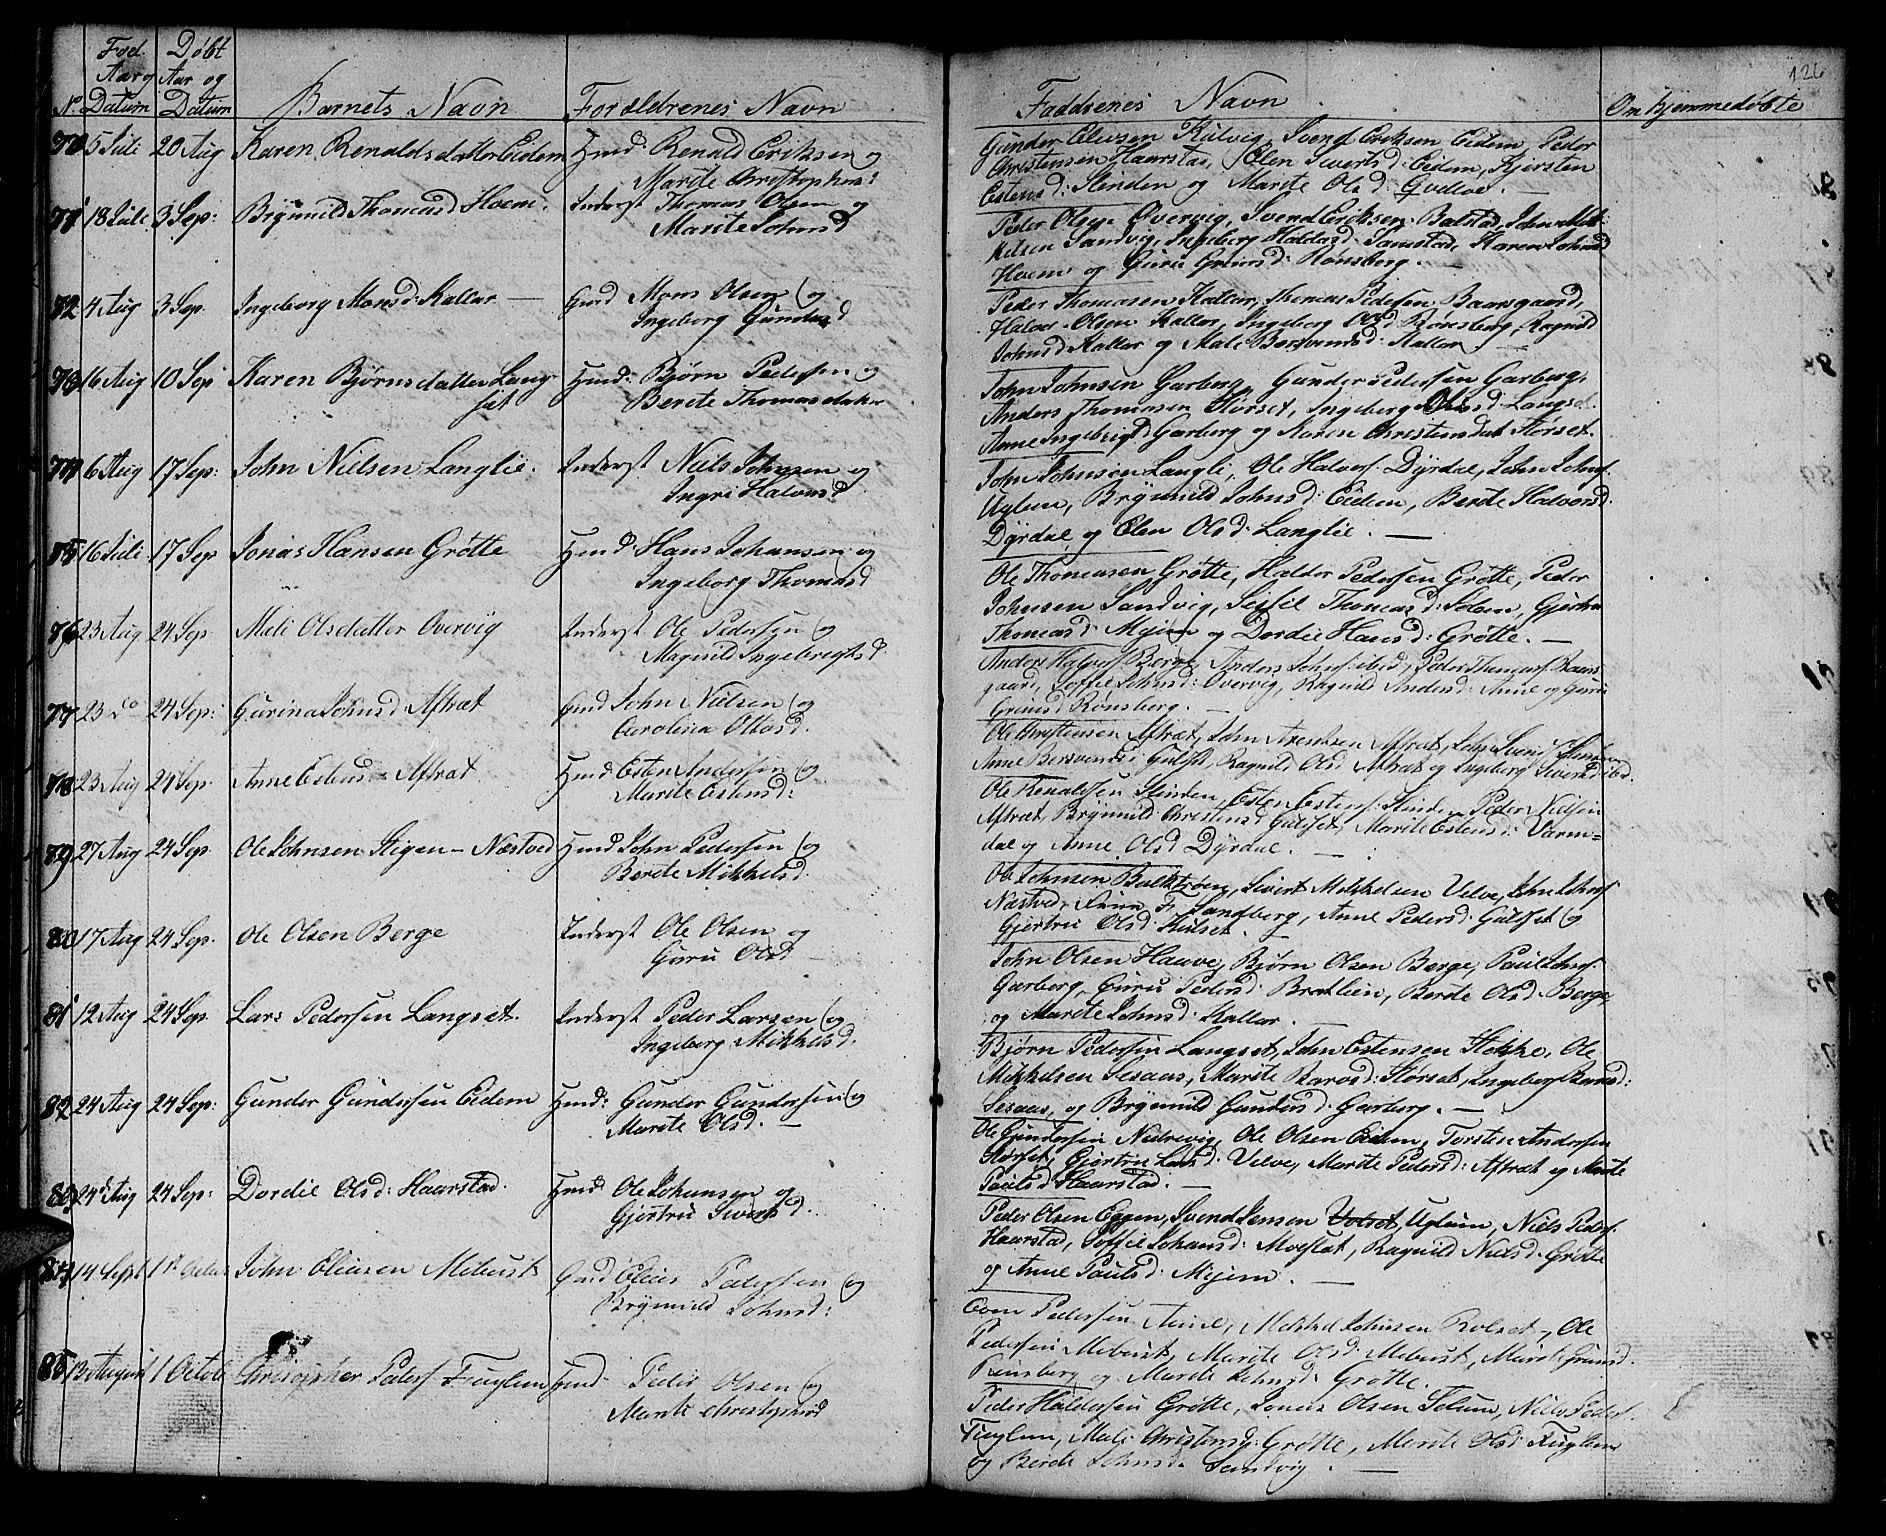 126
Fød. Døbt
Aar og Aar og
No. Datum Datum Barnets Navn Forældrenes Navn Faddrenes Navn Om hjemmedøbte
70 5 Juli 20 Aug Karen Renaldsdatter Eidem Hmd: Renald Eriksen og
Marite Christophersd:
Gunder Elevsen Kulvig, Svend Eriksen Eidem, Peder
Christensen Haarstad, Elen Sivertsd: Eidem, Kjersten
Estensd: Slinden og Marite Olsd:
71 18 Juli 3 Sep: Brynnild Thomasd Hoem. Inderst Thomas Olsen og
Marite Johnsd
Peder Olsen Øvervig, Svend Eriksen Balstad, John Mik-
kelsen Sandvig, Ingeborg Haldosd: Samstad, Karen Johnsd
Hoem og Guru Grimsd: Rønsberg. —
72 4 Aug 3 Sep. Ingeborg Monsd: Kallar — Gmd Mons Olsen og
Ingeborg Gundersd
Peder Thomasen Kallar, Thomas Pedersen Baarsgaard,
Halvor Olsen Kallar, Ingeborg Olsd: Rønsberg, Ragnild
Johnsd Kallar og Mali Bersvendsd: Kallar —
73 16 Aug 10 Sep Karen Bjørnsdatter Lang-
set
Hmd: Bjørn Pedersen og
Berete Thomasdatter
John Johnsen Garberg, Gunder Pedersen Garberg,
Anders Thomasen Størset, Ingeborg Olsd: Langset
Anne Ingebrigtsd Garberg og Karen Christensdat Størset.
74 6 Aug 17 Sep: John Nielsen Langlie. Inderst Niels Johnsen og
Ingri Halvorsd
John Johnsen Langli, Ole Halvors. Dyrdal, John Johns.
Uglem, Brynnild Johnsd: Eidem, Berete Halvorsd:
Dyrdal og Elen Olsd: Langlie. —
75 16 Juli 17 Sep Jonas Hansen Grøtte Hmd: Hans Johansen og
Ingeborg Thomasd
Ole Thomasen Grøtte, Haldor Pedersen Grøtte, Peder
Johnsen Sandvig, Sissil Thomasd: Selem, Gjertru
Thomasd: Mejem og Dordie Hansd: Grøtte. —
76 23 Aug 24 Sep. Mali Olsdatter Overvig Inderst Ole Pedersen og
Magnild Ingebregtsd.
Anders Halvors. Berge, Anders Johns. ibid, Peder Thomas. Baars-
gaard, Soffie Johnsd: Overvig, Ragnild Andersd: Anne og Guru
Grimsd Rønsberg. —
77 23 do 24 Sep: Gurina Johnsd: Aftræt Gmd John Nielsen og
Carolina Ottosd.
Ole Christensen Aftræt, John Arentsen Aftræt, John Svends.
Anne Bersvendsd: Gulset, Ragnild Olsd Aftræt og Ingeborg Sivertsd ibd.
78 23 Aug 24 Sep. Anne Estensd: Aftræt Hmd Esten Andersen og
Marite Estensd:
Ole Renaldsen Slinden, Esten Estens. Slinden, Peder Nielsen
Aftræt, Brynnild Christensd Gulset, Marite Estensd: Varm-
dal og Anne Olsd Dyrdal. —
79 27 Aug 24 Sep Ole Johnsen Stigen — Næstved Hmd John Pedersen og
Berete Mikkelsd.
Ole Johnsen Balstrøen, Sivert Mikkelsen Velve, John Johns.
Næstved, Sandberg, Anne Pedersd: Gulset og
Gjertru Olsd: Kulset. —
80 17 Aug 24 Sep. Ole Olsen Berge Inderst Ole Olsen og
Guru Olsd —
John Olsen Hauve, Bjørn Olsen Berge, Paul Johns.
Garberg, Guru Pedersd: Brætlien, Berete Olsd: Berge,
og Marite Johnsd: Kallar. —
81 12 Aug 24 Sep. Lars Pedersen Langset. Inderst Peder Larsen og
Ingeborg Mikkelsd.
Bjørn Pedersen Langset, John Estensen Stokke, Ole
Mikkelsen Sesaas, Marite Baarsd: Størset, Ingeborg Bersd:
Sesaas, og Brynnild Gundersd: Garberg. —
82 24 Aug 24 Sep: Gunder Gundersen Eidem Hmd: Gunder Gundersen og
Marite Olsd. —
Ole Gundersen Nedrevig, Ole Olsen Eidem, Torsten Andersen
Størset, Gjertru Larsd: Velve, Marite Pedersd: Aftræt og Marite
Paulsd Haarstad. —
83 24 Aug 24 Sep: Dordie Olsd: Haarstad. Hmd Ole Johansen og
Gjertru Sivertsd.
Peder Olsen Eggen, Svend Jensen Volset, Uglum, Niels Peders.
Haarstad, Soffie Johansd: Moestat, Ragnild Nielsd: Grøtte
og Anne Paulsd: Mejem. —
84 14 Sept 1ste Octob John Eliasen Mebust Gmd Elias Pedersen og
Brynnild Johnsd:
Even Pedersen Aune, Mikkel Johnsen Rolset, Ole
Pedersen Mebust, Marite Olsd: Mebust, Marit Grimsd.
Rønsberg og Marite Johnsd: Grøtte.
85 13 August 1 Octob Christopher Peders. Fuglem Hmd. Peder Olsen og
Marite Christophersd
Peder Haldorsen Grøtte, Jonas Olsen Selum, Niels Peders.
Fuglem, Mali Christensd: Grøtte, Marite Olsd: Fuglem
og Berete Johnsd. Sandvig. —